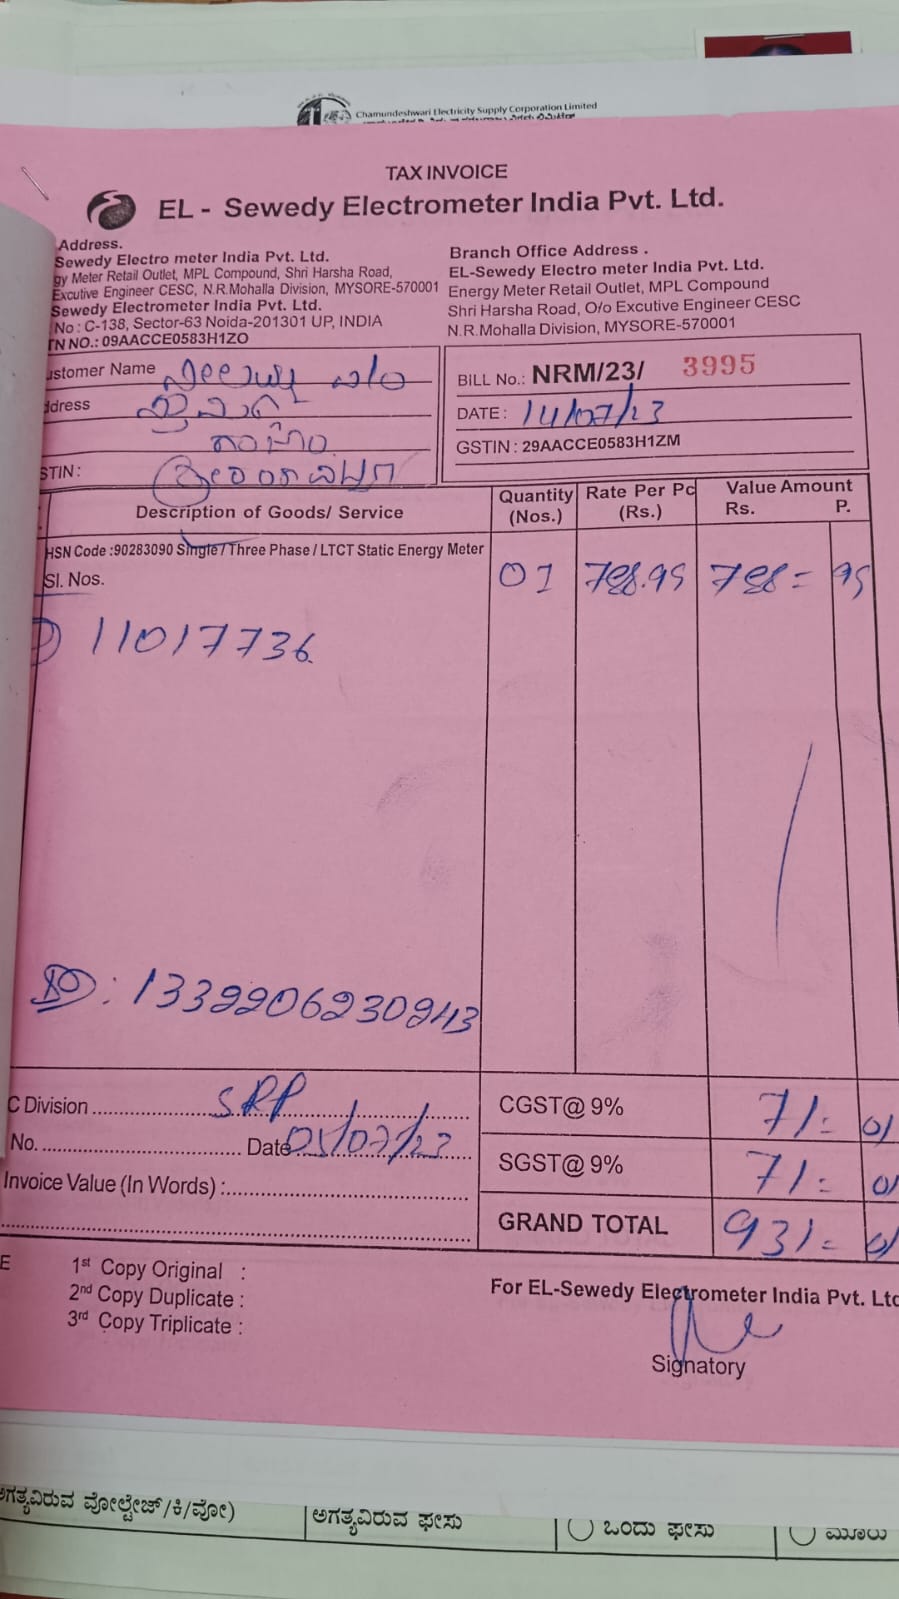 Chamundeshwari Electricity Supply Corporation Limited
TAX INVOICE
EL - Sewedy Electrometer India Pvt. Ltd.
Address.
Sewedy Electro meter India Pvt. Ltd.
gy Meter Retail Outlet, MPL Compound, Shri Harsha Road,
Excutive Engineer CESC, N.R.Mohalla Division, MYSORE-570001
Sewedy Electrometer India Pvt. Ltd.
No : C-138, Sector-63 Noida-201301 UP, INDIA
TN NO.: 09AACCE0583H1ZO
Branch Office Address .
EL-Sewedy Electro meter India Pvt. Ltd.
Energy Meter Retail Outlet, MPL Compound
Shri Harsha Road, O/o Excutive Engineer CESC
N.R.Mohalla Division, MYSORE-570001
ustomer Name
ddress
STIN : ಶ್ರೀರಂಗಪಟ್ಟಣ
BILL No.: NRM/23/ 3995
DATE : 14/07/23
GSTIN : 29AACCE0583H1ZM
Description of Goods/ Service
Quantity (Nos.)
Rate Per Pc (Rs.)
Value Amount
Rs. P.
HSN Code :90283090 Single / Three Phase / LTCT Static Energy Meter
Sl. Nos.
01 788.95 788= 95
1) 11017736
: 1332206230243
C Division SRP
No. Date 05/07/23
Invoice Value (In Words) :
CGST@ 9% 71= 01
SGST@ 9% 71= 01
GRAND TOTAL 931= 01
E 1st Copy Original :
2nd Copy Duplicate :
3rd Copy Triplicate :
For EL-Sewedy Electrometer India Pvt. Ltd
Signatory
ಅಗತ್ಯವಿರುವ ವೋಲ್ಟೇಜ್/ಕಿ/ವೋ)
ಅಗತ್ಯವಿರುವ ಫೇಸು
ಒಂದು ಫೇಸು
ಮೂರು